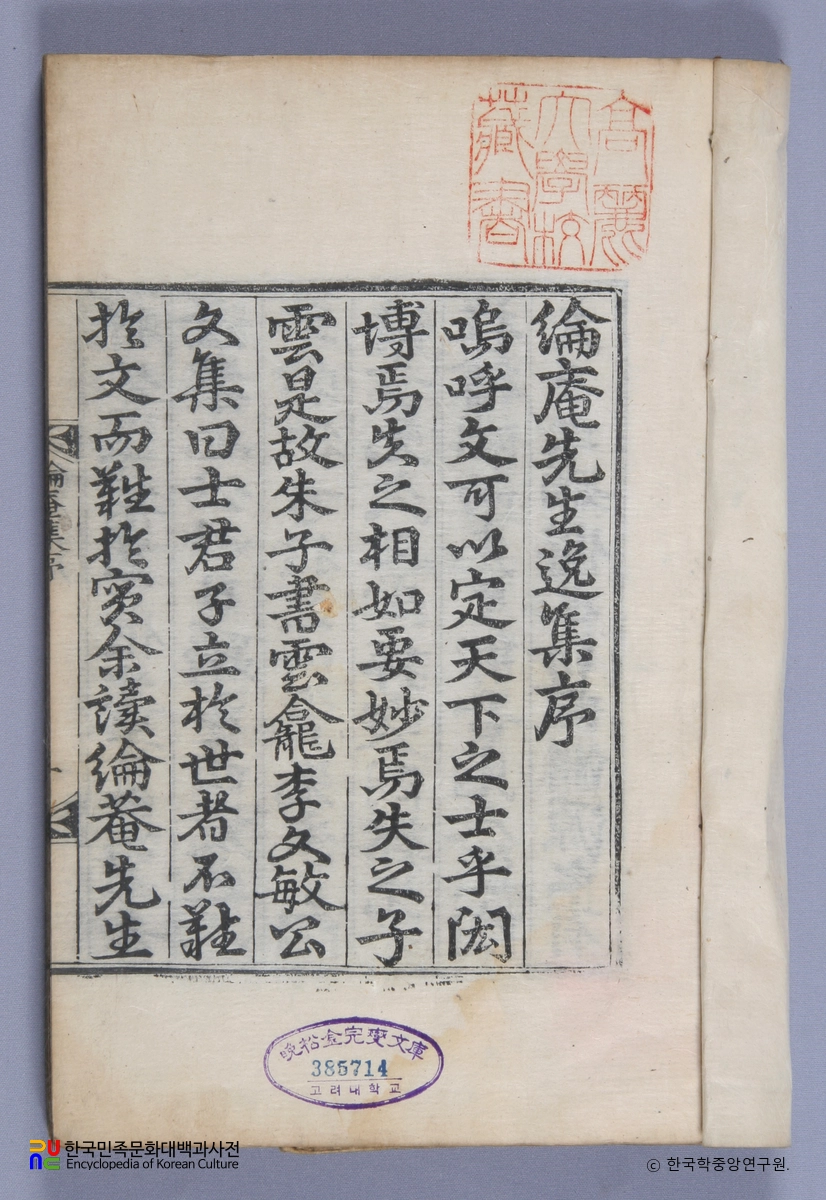 高麗
大學校
藏書
綸庵先生逸集序
嗚呼文可以定天下之士乎閎
博焉失之相如要妙焉失之子
雲是故朱子書雲龕李文敏公
文集曰士君子立於世者不難
於文而難於實余讀綸菴先生
晩松金完燮文庫
385714
고려대학교
한국민족문화대백과사전
Encyclopedia of Korean Culture
ⓒ 한국학중앙연구원.